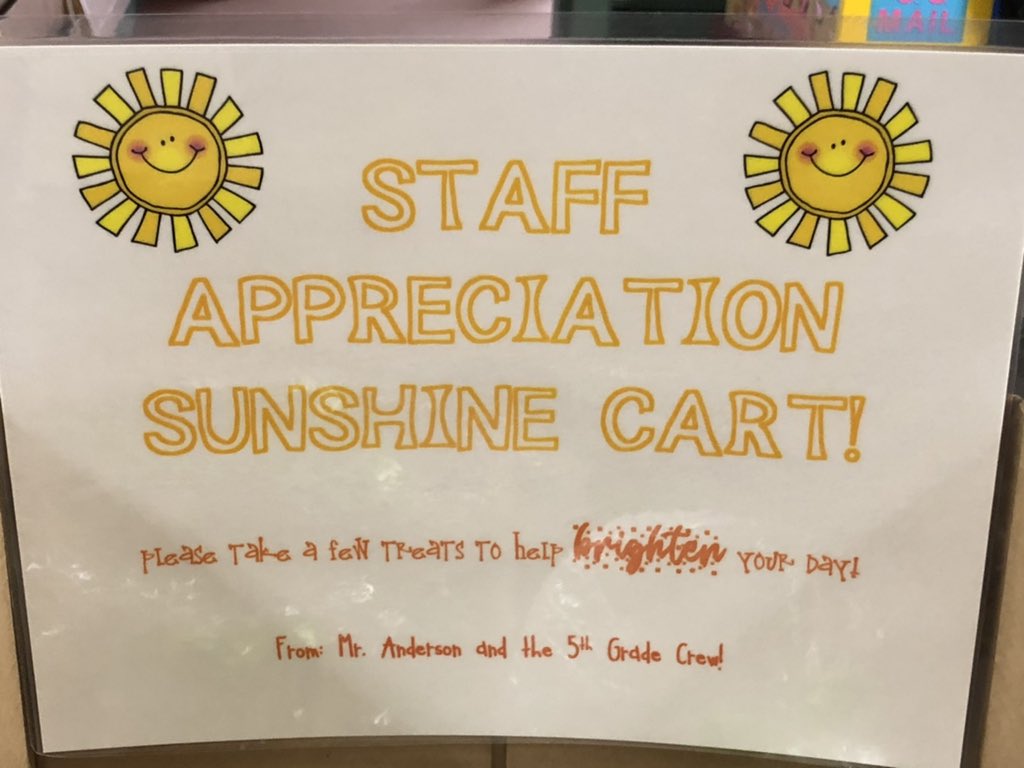 MAIL
STAFF
APPRECIATION
SUNSHINE CART!
please take a few treats to help brighten your day!
From: Mr. Anderson and the 5th Grade Crew!